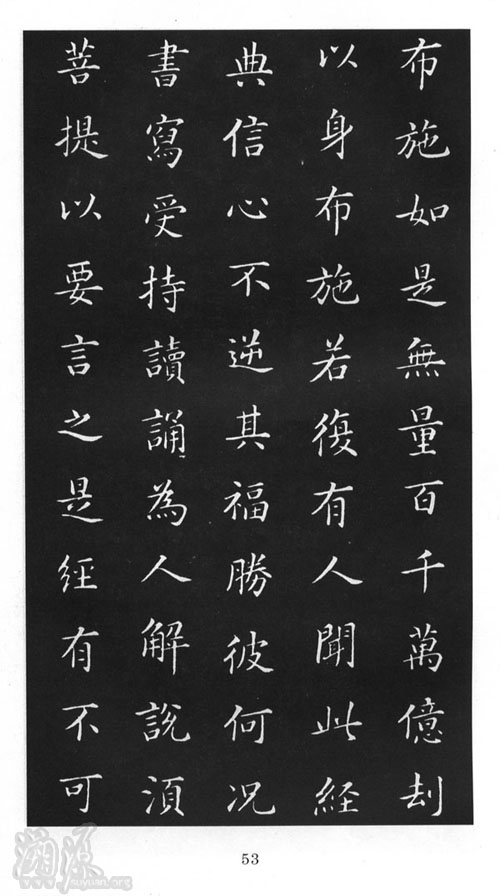 布施如是無量百千萬億刦
以身布施若復有人聞此経
典信心不逆其福勝彼何况
書寫受持讀誦為人解說湏
菩提以要言之是経有不可
53
溯源
suyuan.org